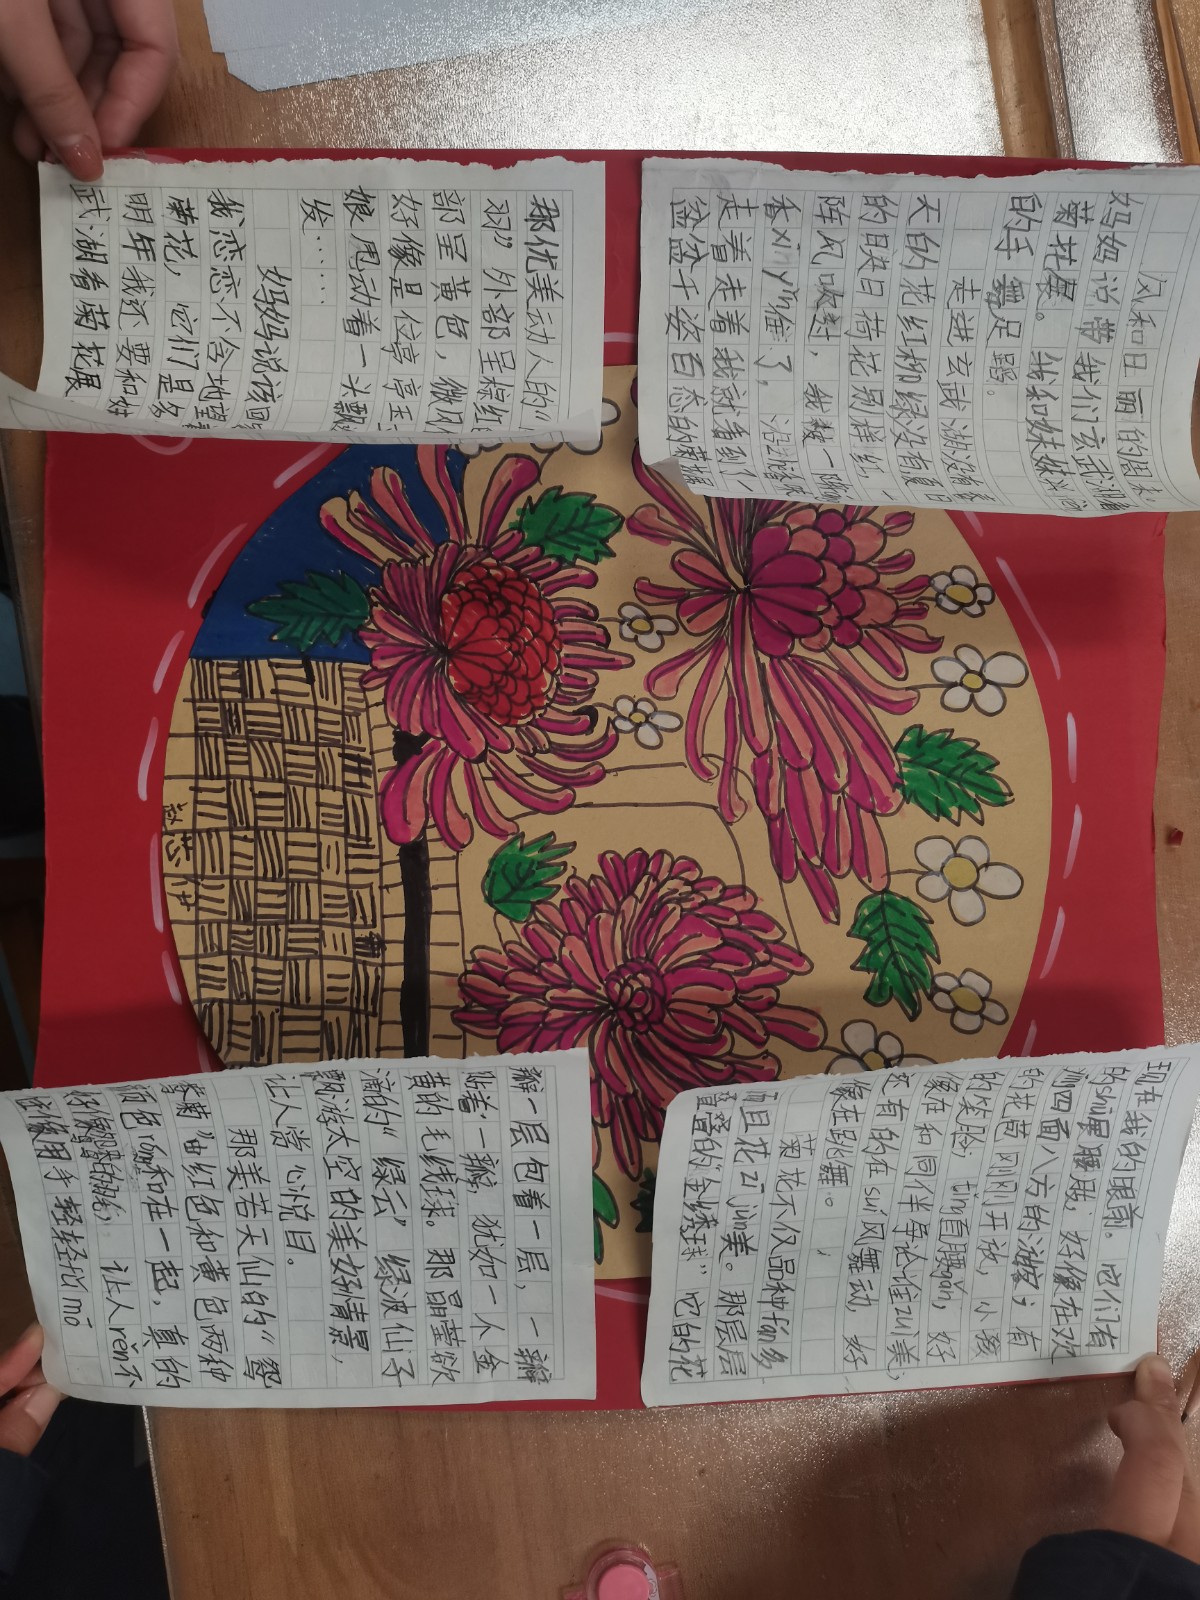 风和日丽的周末,
妈妈说带我们玄武湖看
菊花展。我和妹妹兴
的手舞足蹈。
走进玄武湖没有春
天的花红柳绿没有夏日
的映日荷花别样红,一
阵风吹过,我被一阵
香xīn yǐn住了,沿
走着走着我就看到了一
盆盆千姿百态的菊
现在我的眼前。它们有
的shū展腰肢,好像在欢
迎四面八方的游客;有
的花苞刚刚开放,小
的笑脸,tǐng直腰gǎn,好
像在和同伴争论谁zuì美;
还有的在suí风舞动,好
像在跳舞。
菊花不仅品种fán多
而且花zījīng美。那层层
叠叠的“金绣球”它的花
瓣一层包着一层,一瓣
贴着一瓣,犹如一个金
黄的毛线球。那晶莹欲
滴的“绿云”绿波仙子
翱游太空的美好情景,
让人赏心悦目。
那美若天仙的“鸳
鸯菊”由红色和黄色两种
颜色róng和在一起,真的
让人rěn不
住伸手轻轻地mō
那优美动人的“
羽”外部呈棕红
部呈黄色,微风
好像是位亭亭玉
娘甩动着一头飘
发……
妈妈说该回
我恋恋不舍地望着
菊花,它们是多
明年我还要和妹
武湖看菊花展